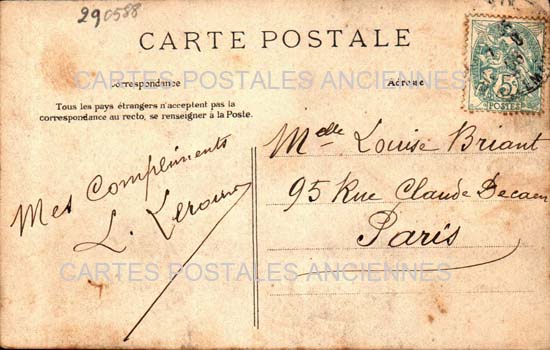 290588
CARTE POSTALE
CARTES POSTALES ANCIENNES
Correspondance
Adresse
Tous les pays étrangers n'acceptent pas la
correspondance au recto, se renseigner à la Poste.
5
POSTES
Mes Compliments
L.
Melle Louise Briant
95 Rue Claude Decaen
Paris
CARTES POSTALES ANCIENNES